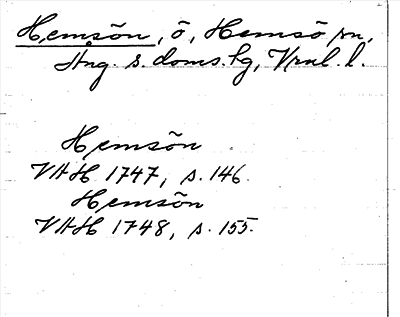 Hemsön, ö, Hemsö sn,
Ång. s. doms.hg, Vrnl. l.
Hemsön
VHH 1747, s. 146
Hemsön
VHH 1748, s. 155.